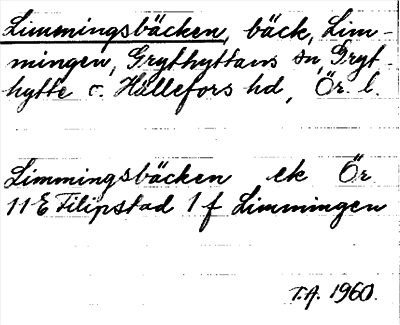 Limmingsbäcken, bäck, Lim-
mingen, Grythyttans sn, Gryt-
hytte o. Hällefors hd, Ör. l.
Limmingsbäcken ek Ör
11E Filipstad 1f Limmingen
T.A. 1960.